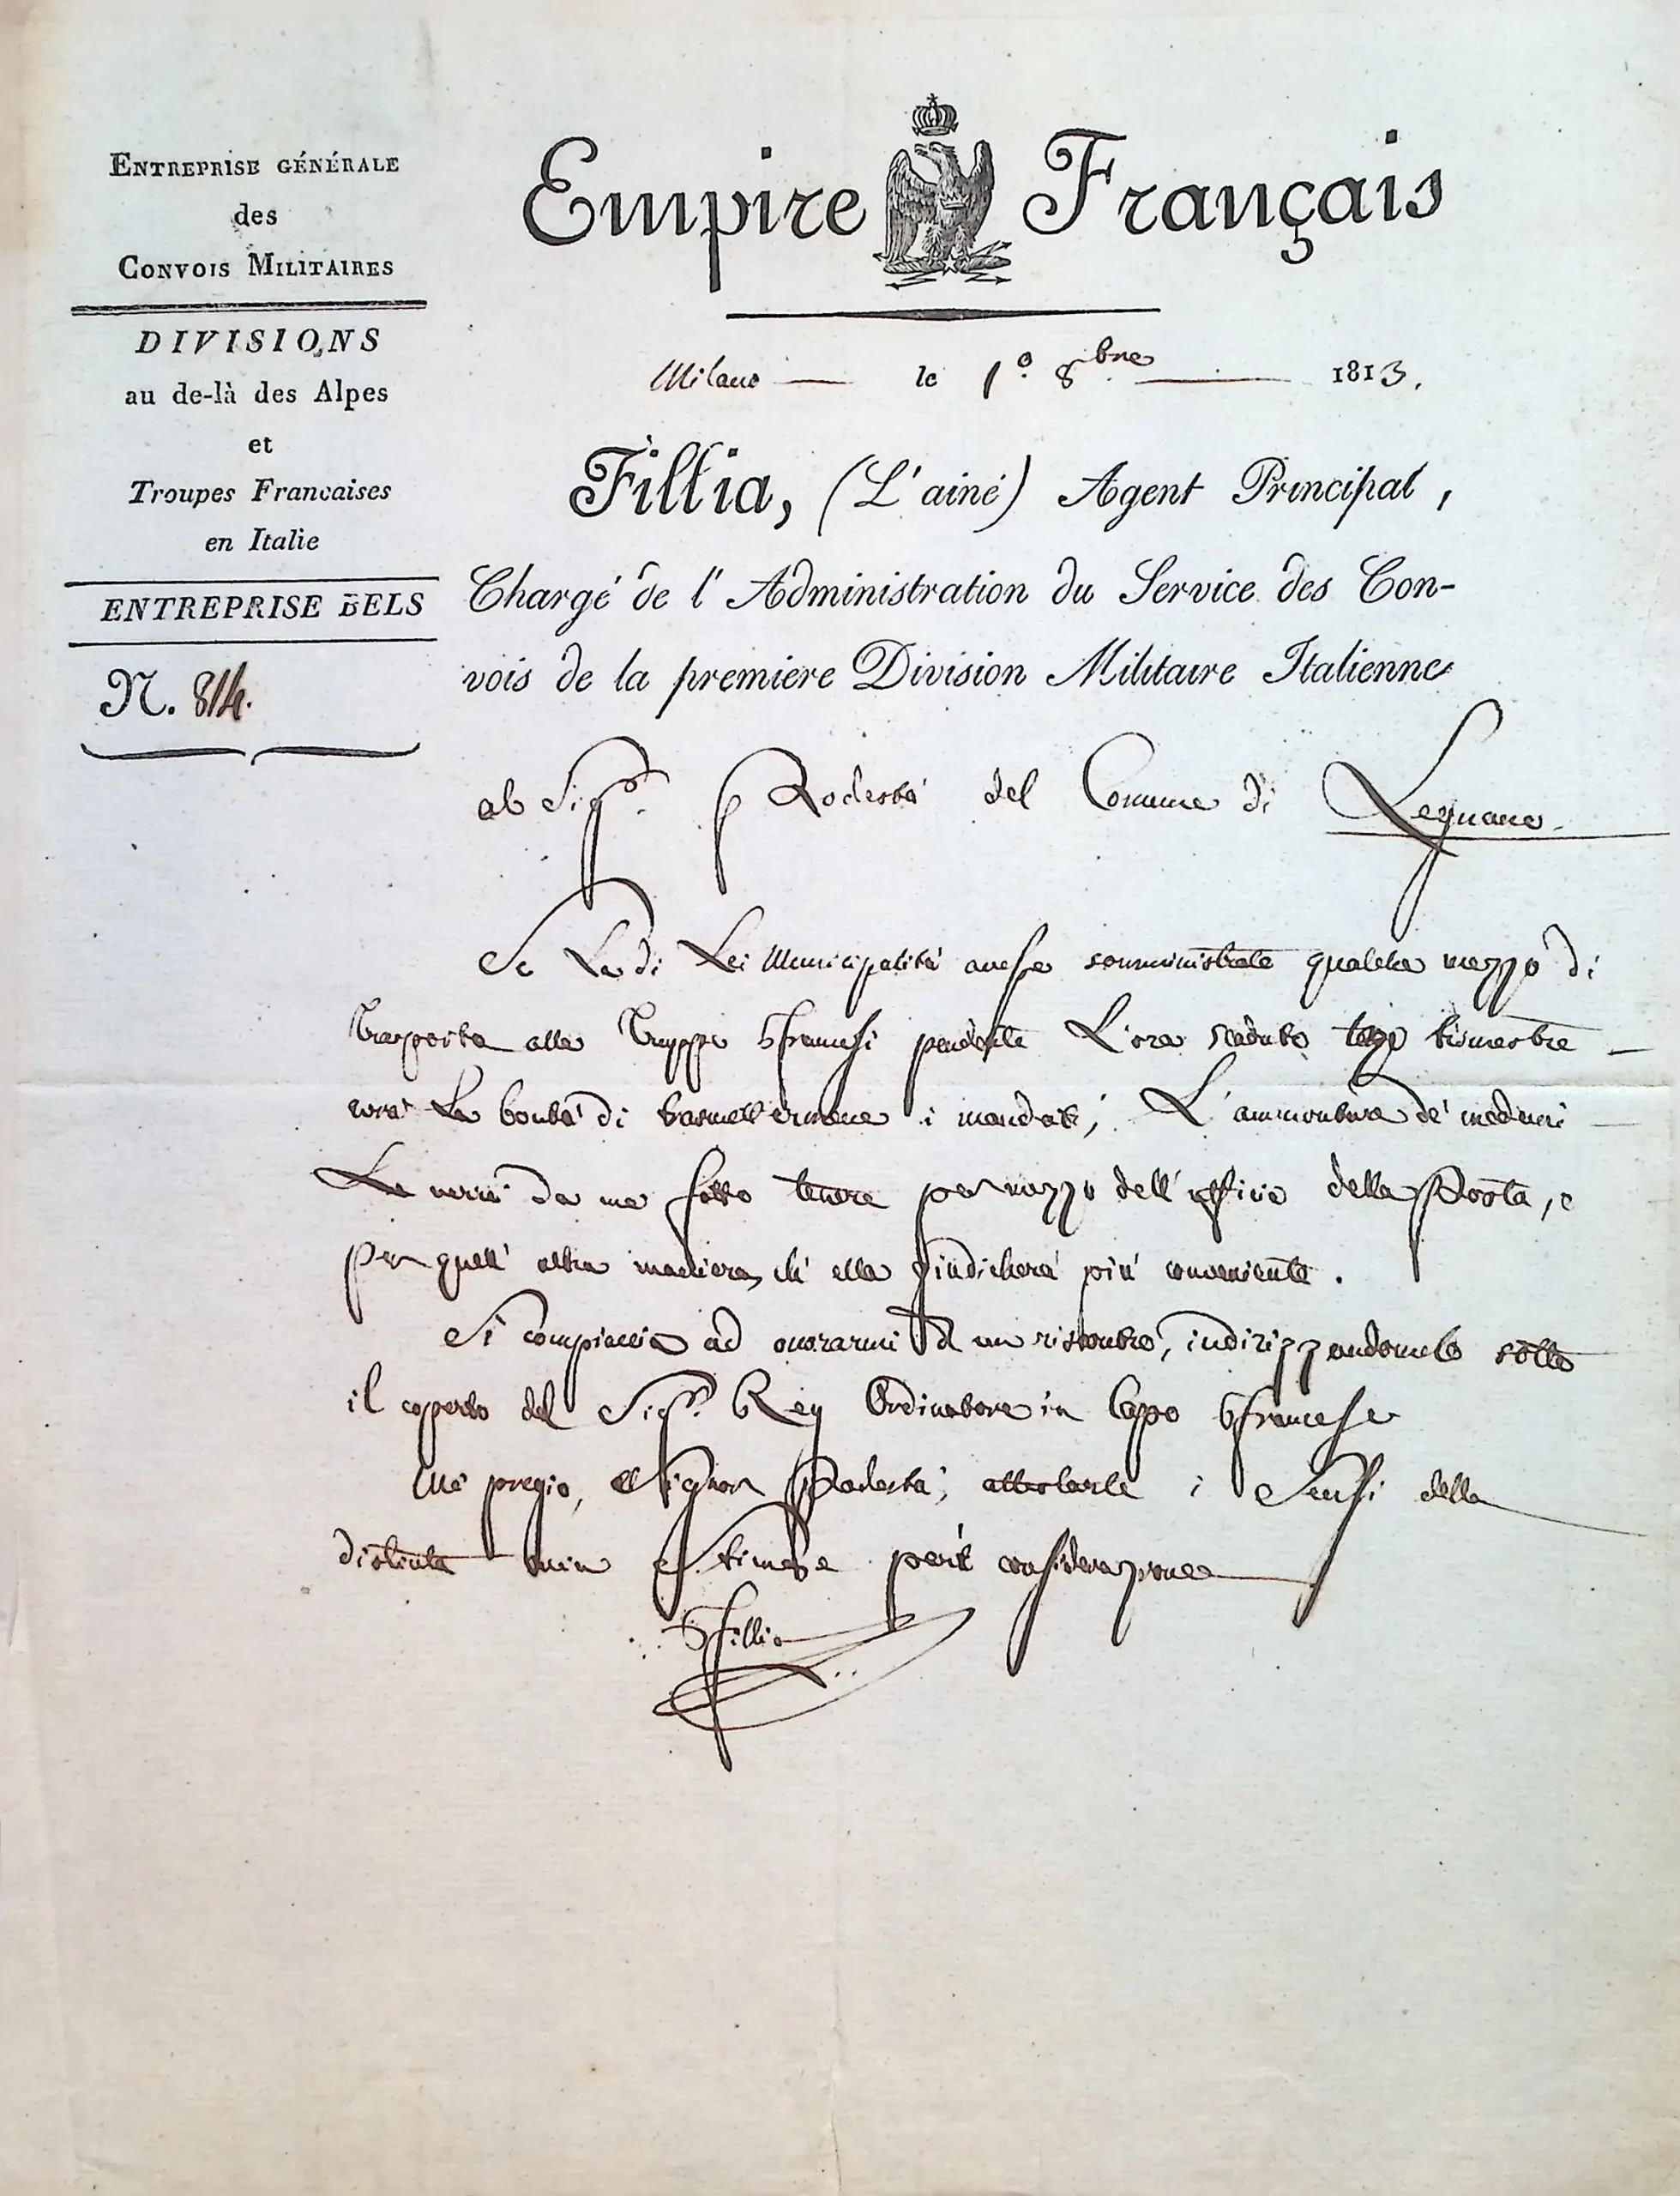 ENTREPRISE GÉNÉRALE
des
CONVOIS MILITAIRES
DIVISIONS
au de-là des Alpes
et
Troupes Francaises
en Italie
ENTREPRISE BELS
N. 814.
Empire Français
Milano le 1º 8bre 1813.
Fillia, (L'ainé) Agent Principal,
Chargé de l'Administration du Service des Con-
vois de la premiere Division Militaire Italienne
al Sigr. Podestà del Comune di Legnano
Se La di Lei Municipalità avesse somministrato qualche mezzo di
Trasporto alle Truppe francesi pendente L'ora scaduto terzo trimestre
avrà La bontà di i mandati; L'ammontare de' medemi
Le verrà da me fatto tenere per mezzo dell'uffizio della Posta, o
per quell'altra maniera, ch'ella giudicherà più conveniente.
Si compiaccia ad onorarmi d'un riscontro, indirizzandomelo sotto
il coperto del Sigr. Rey Ordinatore in Capo francese
Mi pregio, Signor Podestà, attestarle i Sensi della
distinta mia Stima e considerazione
Fillia